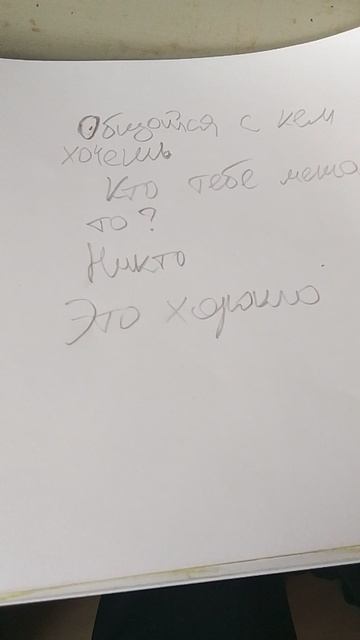 Общайся с кем
хочешь
Кто тебе меша
то?
Никто
Это хорошо